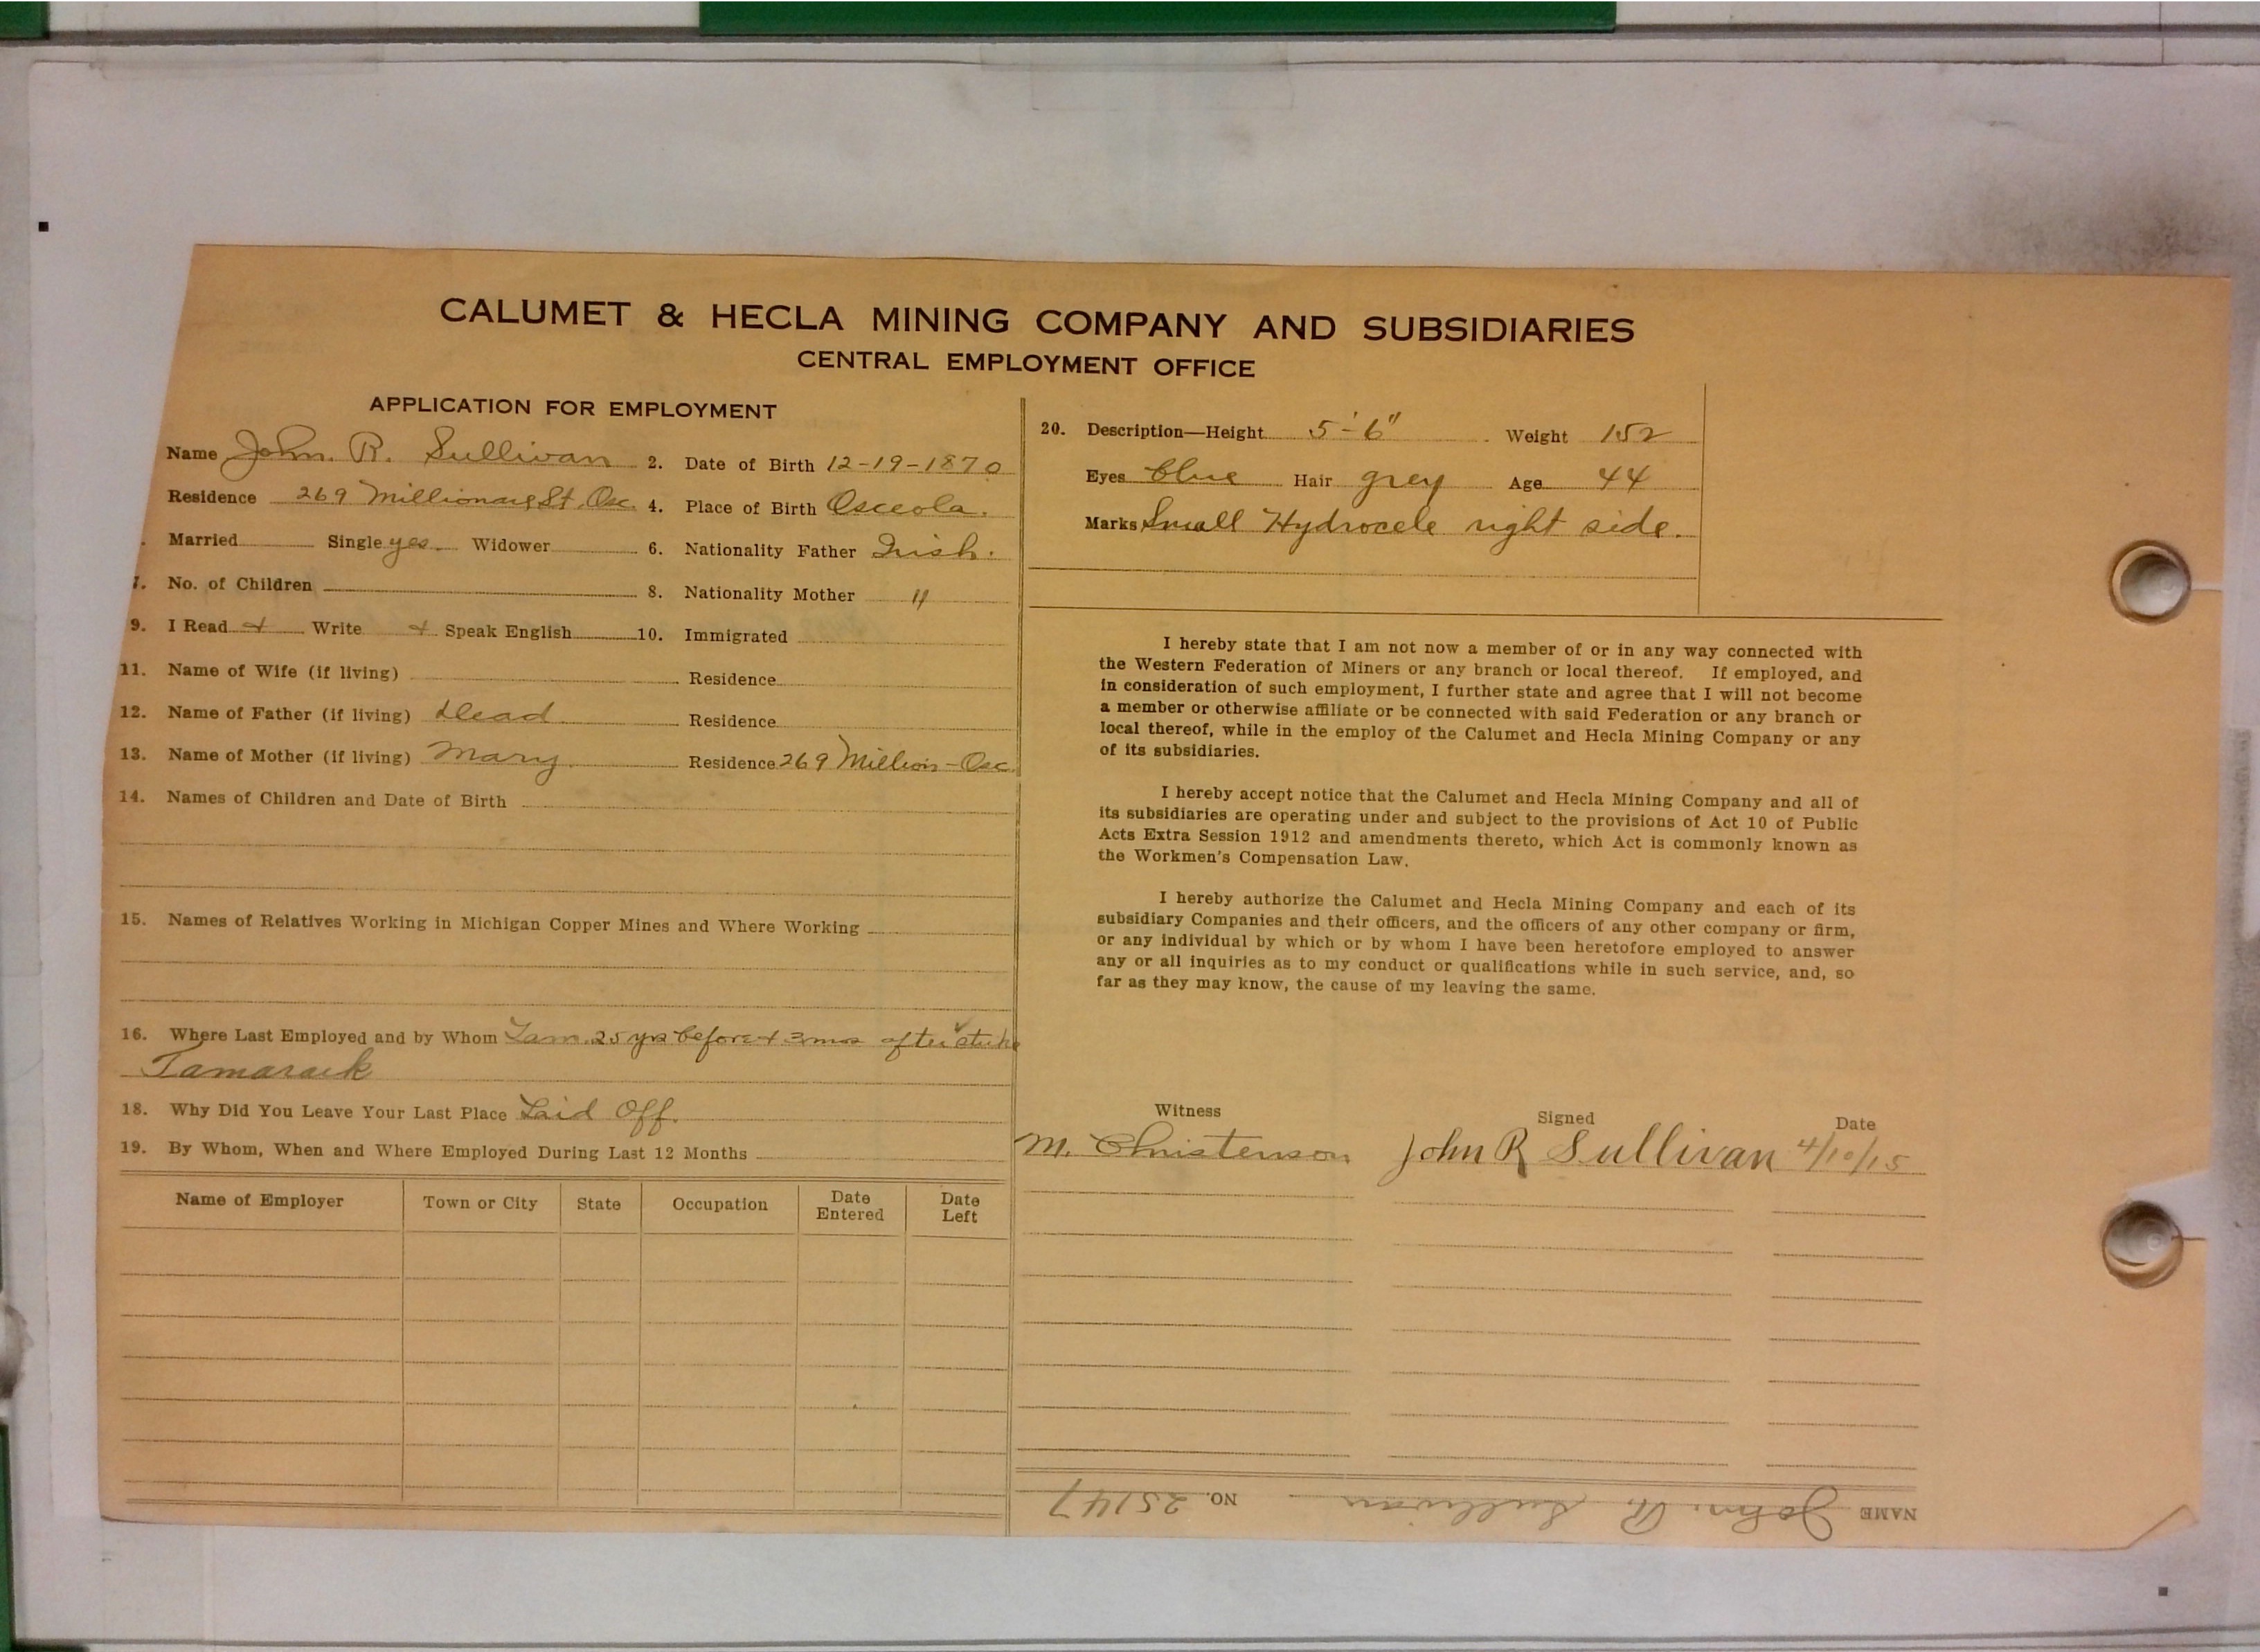 CALUMET & HECLA MINING COMPANY AND SUBSIDIARIES
CENTRAL EMPLOYMENT OFFICE
APPLICATION FOR EMPLOYMENT
Name John. R. Sullivan 2. Date of Birth 12-19-1870
Residence 269 Millionaire St. Osc. 4. Place of Birth Osceola.
Married Single yes. Widower 6. Nationality Father Irish.
7. No. of Children 8. Nationality Mother "
9. I Read Write Speak English 10. Immigrated
11. Name of Wife (if living) Residence
12. Name of Father (if living) Dead Residence
13. Name of Mother (if living) Mary. Residence 269 Million- Osc.
14. Names of Children and Date of Birth
15. Names of Relatives Working in Michigan Copper Mines and Where Working
16. Where Last Employed and by Whom Tam. 25 yrs before + 3 mos after strike
Tamarack
18. Why Did You Leave Your Last Place Laid Off.
19. By Whom, When and Where Employed During Last 12 Months
Name of Employer Town or City State Occupation Date Entered Date Left
20. Description—Height 5'-6" Weight 152
Eyes blue Hair grey Age 44
Marks Small Hydrocele right side.
I hereby state that I am not now a member of or in any way connected with
the Western Federation of Miners or any branch or local thereof. If employed, and
in consideration of such employment, I further state and agree that I will not become
a member or otherwise affiliate or be connected with said Federation or any branch or
local thereof, while in the employ of the Calumet and Hecla Mining Company or any
of its subsidiaries.
I hereby accept notice that the Calumet and Hecla Mining Company and all of
its subsidiaries are operating under and subject to the provisions of Act 10 of Public
Acts Extra Session 1912 and amendments thereto, which Act is commonly known as
the Workmen's Compensation Law.
I hereby authorize the Calumet and Hecla Mining Company and each of its
subsidiary Companies and their officers, and the officers of any other company or firm,
or any individual by which or by whom I have been heretofore employed to answer
any or all inquiries as to my conduct or qualifications while in such service, and, so
far as they may know, the cause of my leaving the same.
Witness Signed Date
M. Christenson John R Sullivan 4/10/15
NAME John. R. Sullivan NO. 25147